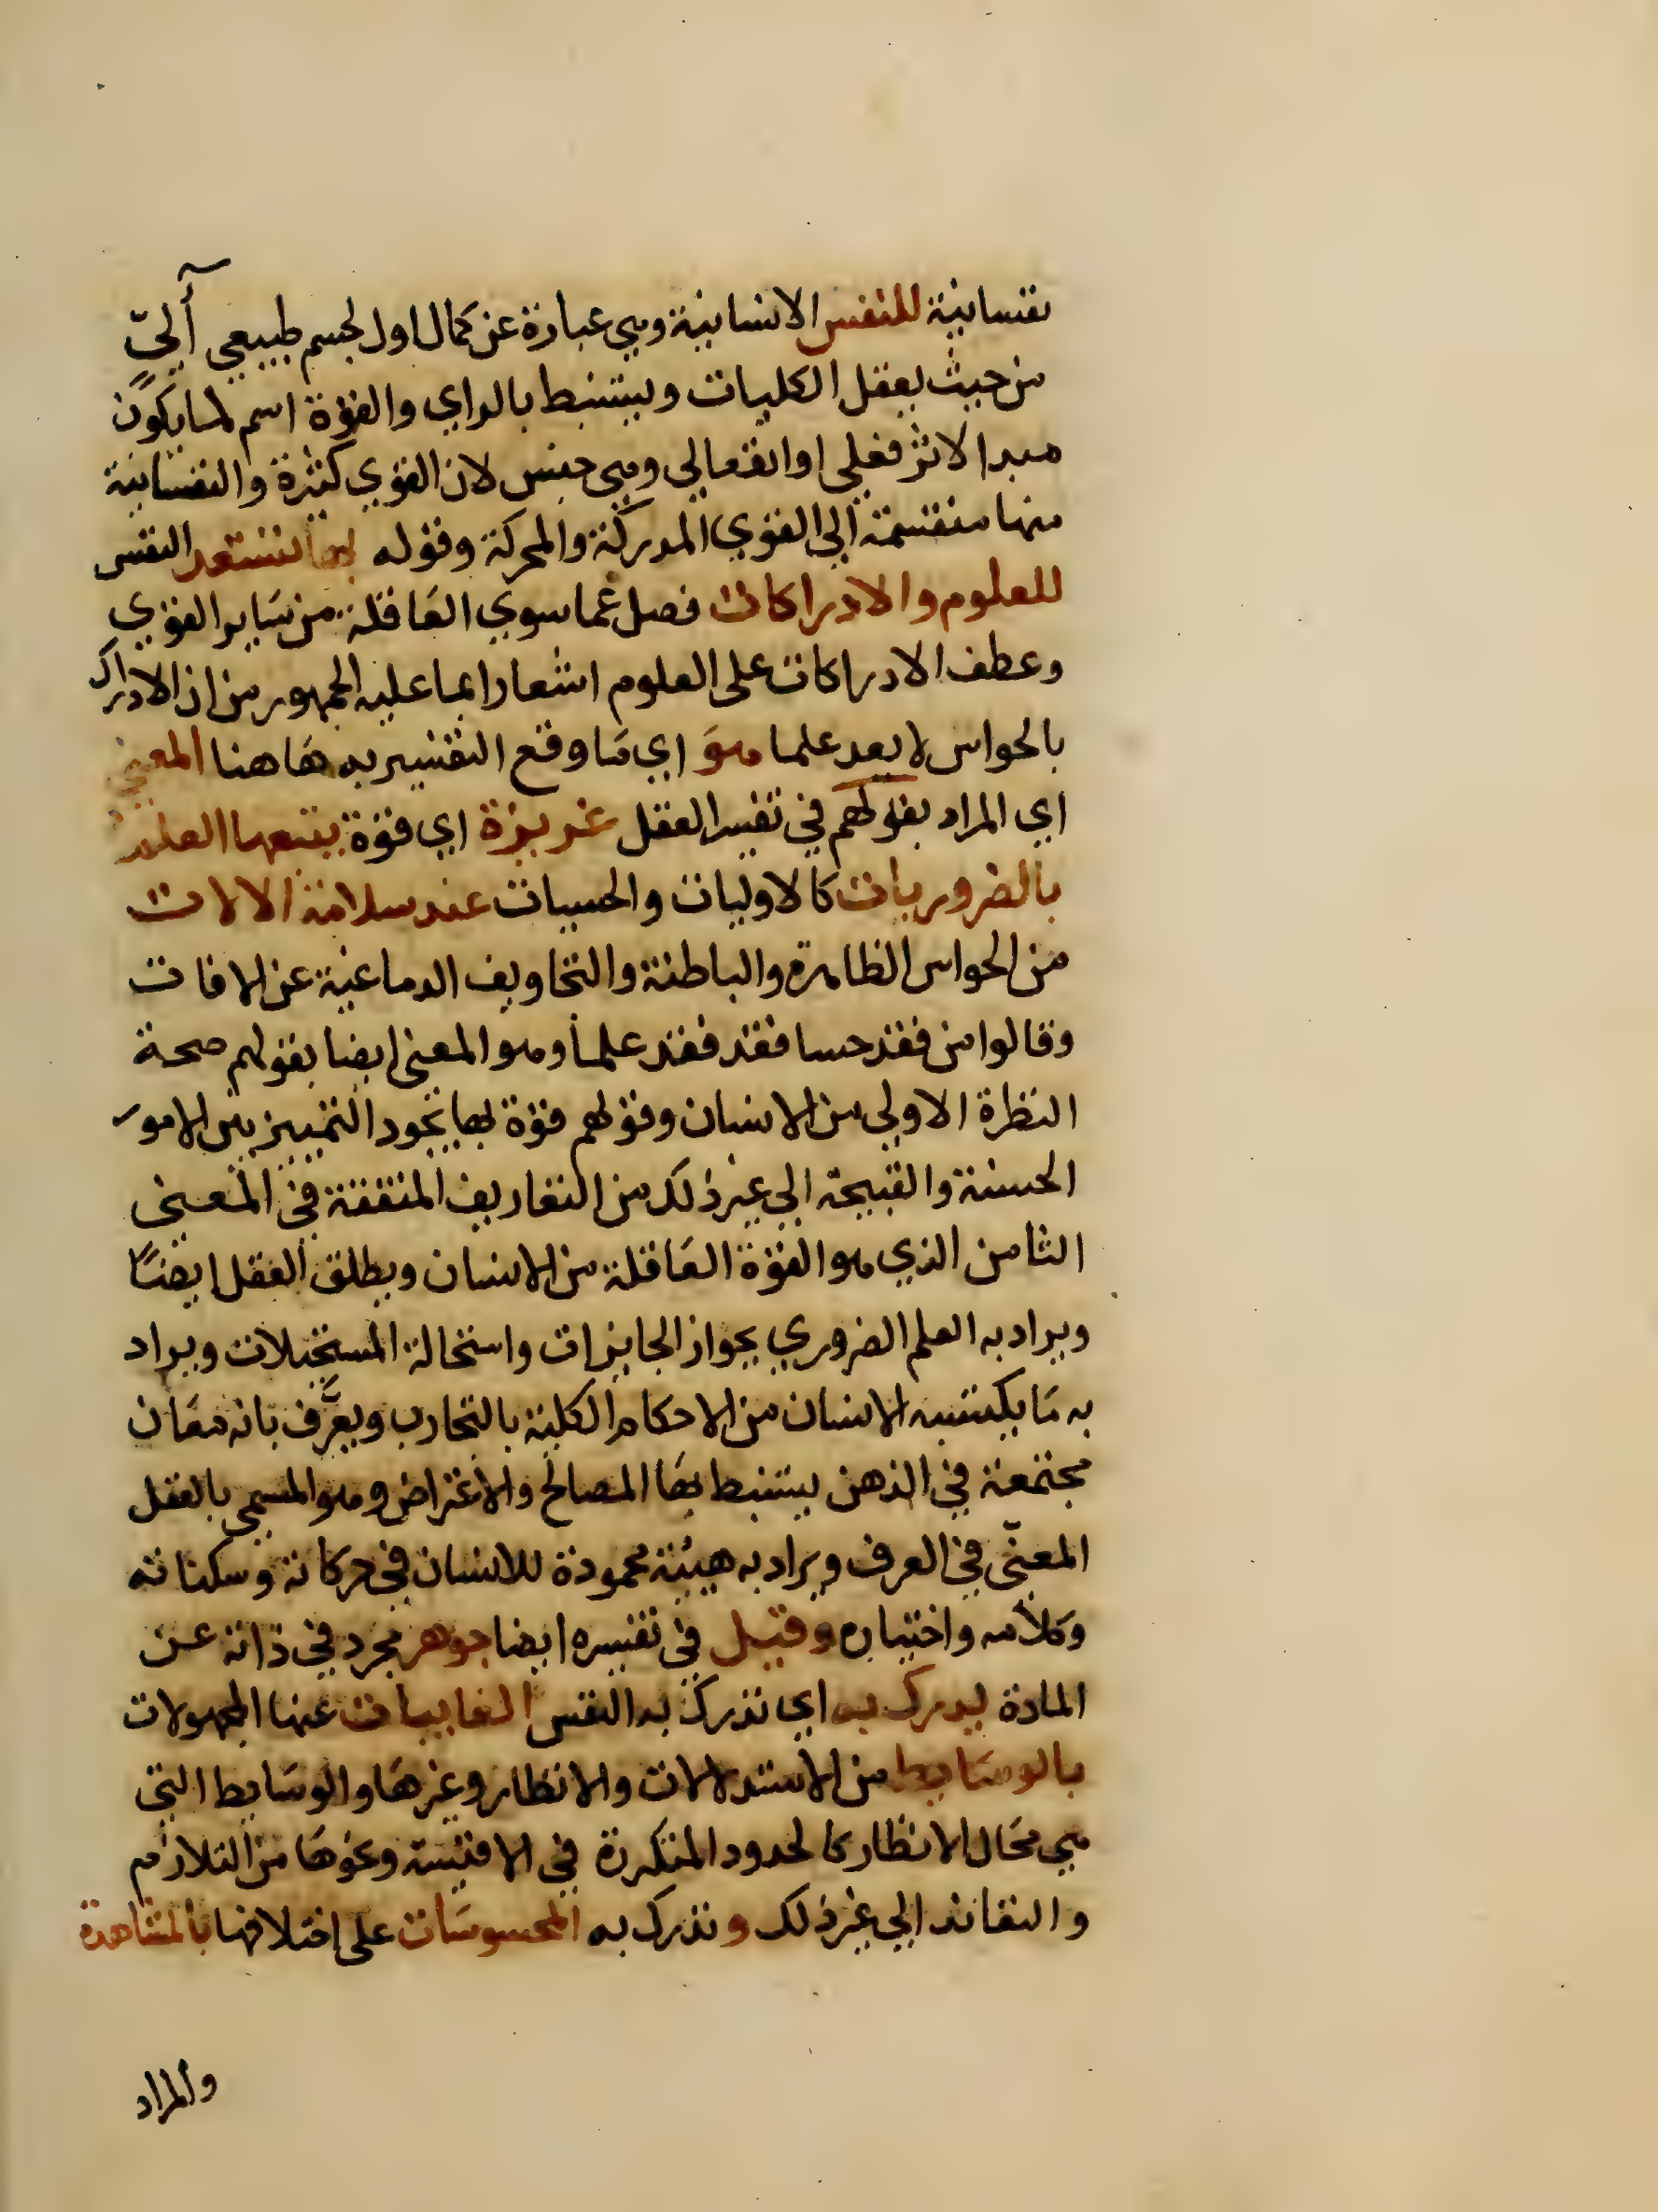 نفسانية للنفس الانسانية وهي عبارة عن كمال اول لجسم طبيعي آليّ
من حيث يعقل الكليات ويستنبط بالراي والقوة اسم لما يكون
مبدا لاثر فعلي او انفعالي وهي جنس لان القوي كثيرة والنفسانية
منها منقسمة الي القوي المدركة والمحركة وقوله بها تستعد النفس
للعلوم والادراكات فصل عما سوي العاقلة من ساير القوي
وعطف الادراكات على العلوم اشعارا بما عليه الجمهور من ان الادراك
بالحواس لا يعد علما هو اي ما وقع التفسير به هاهنا المعني
اي المراد بقولهم في تفسير العقل غريزة اي قوة يتبعها العلم
بالضروريات كالاوليات والحسيات عند سلامة الالات
من الحواس الظاهرة والباطنة والتجاويف الدماغية عن الافات
وقالوا من فقد حسا فقد فقد علما وهو المعني ايضا بقولهم صحة
النظرة الاولي من الانسان وقولهم قوة بها يجود التمييز بين الامور
الحسنة والقبيحة الي غير ذلك من التعاريف المتفقة في المعني
الثامن الذي هو القوة العاقلة من الانسان ويطلق العقل ايضا
ويراد به العلم الضروري بجواز الجايزات واستحالة المستحيلات ويراد
به ما يكتسبه الانسان من الاحكام الكلية بالتجارب ويعرَّف بانه معان
مجتمعة في الذهن يستنبط بها المصالح والاغراض وهو المسمي بالعقل
المعنّي في العرف ويراد به هيئة محمودة للانسان في حركاته وسكناته
وكلامه واختياره وقيل في تفسيره ايضا جوهر مجرد في ذاته عن
المادة يدرك به اي تدرك به النفس الغايبات عنها المجهولات
بالوسايط من الاستدلالات والانظار وغيرها والوسايط التي
هي محال الانظار كالحدود المتكررة في الاقيسة ونحوها من التلازم
والتعاند الي غير ذلك وتدرك به المحسوسات على اختلافها بالمشاهدة
والمراد